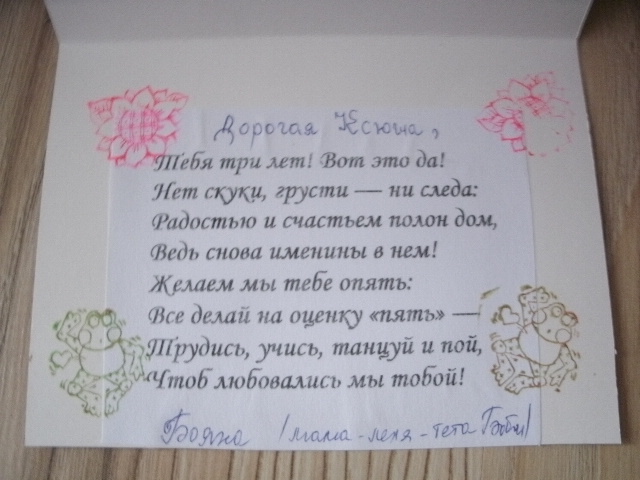 Дорогая Ксюша,
Тебя три лет! Вот это да!
Нет скуки, грусти — ни следа:
Радостью и счастьем полон дом,
Ведь снова именины в нем!
Желаем мы тебе опять:
Все делай на оценку «пять» —
Трудись, учись, танцуй и пой,
Чтоб любовались мы тобой!
Бояна /мама - леля - тета